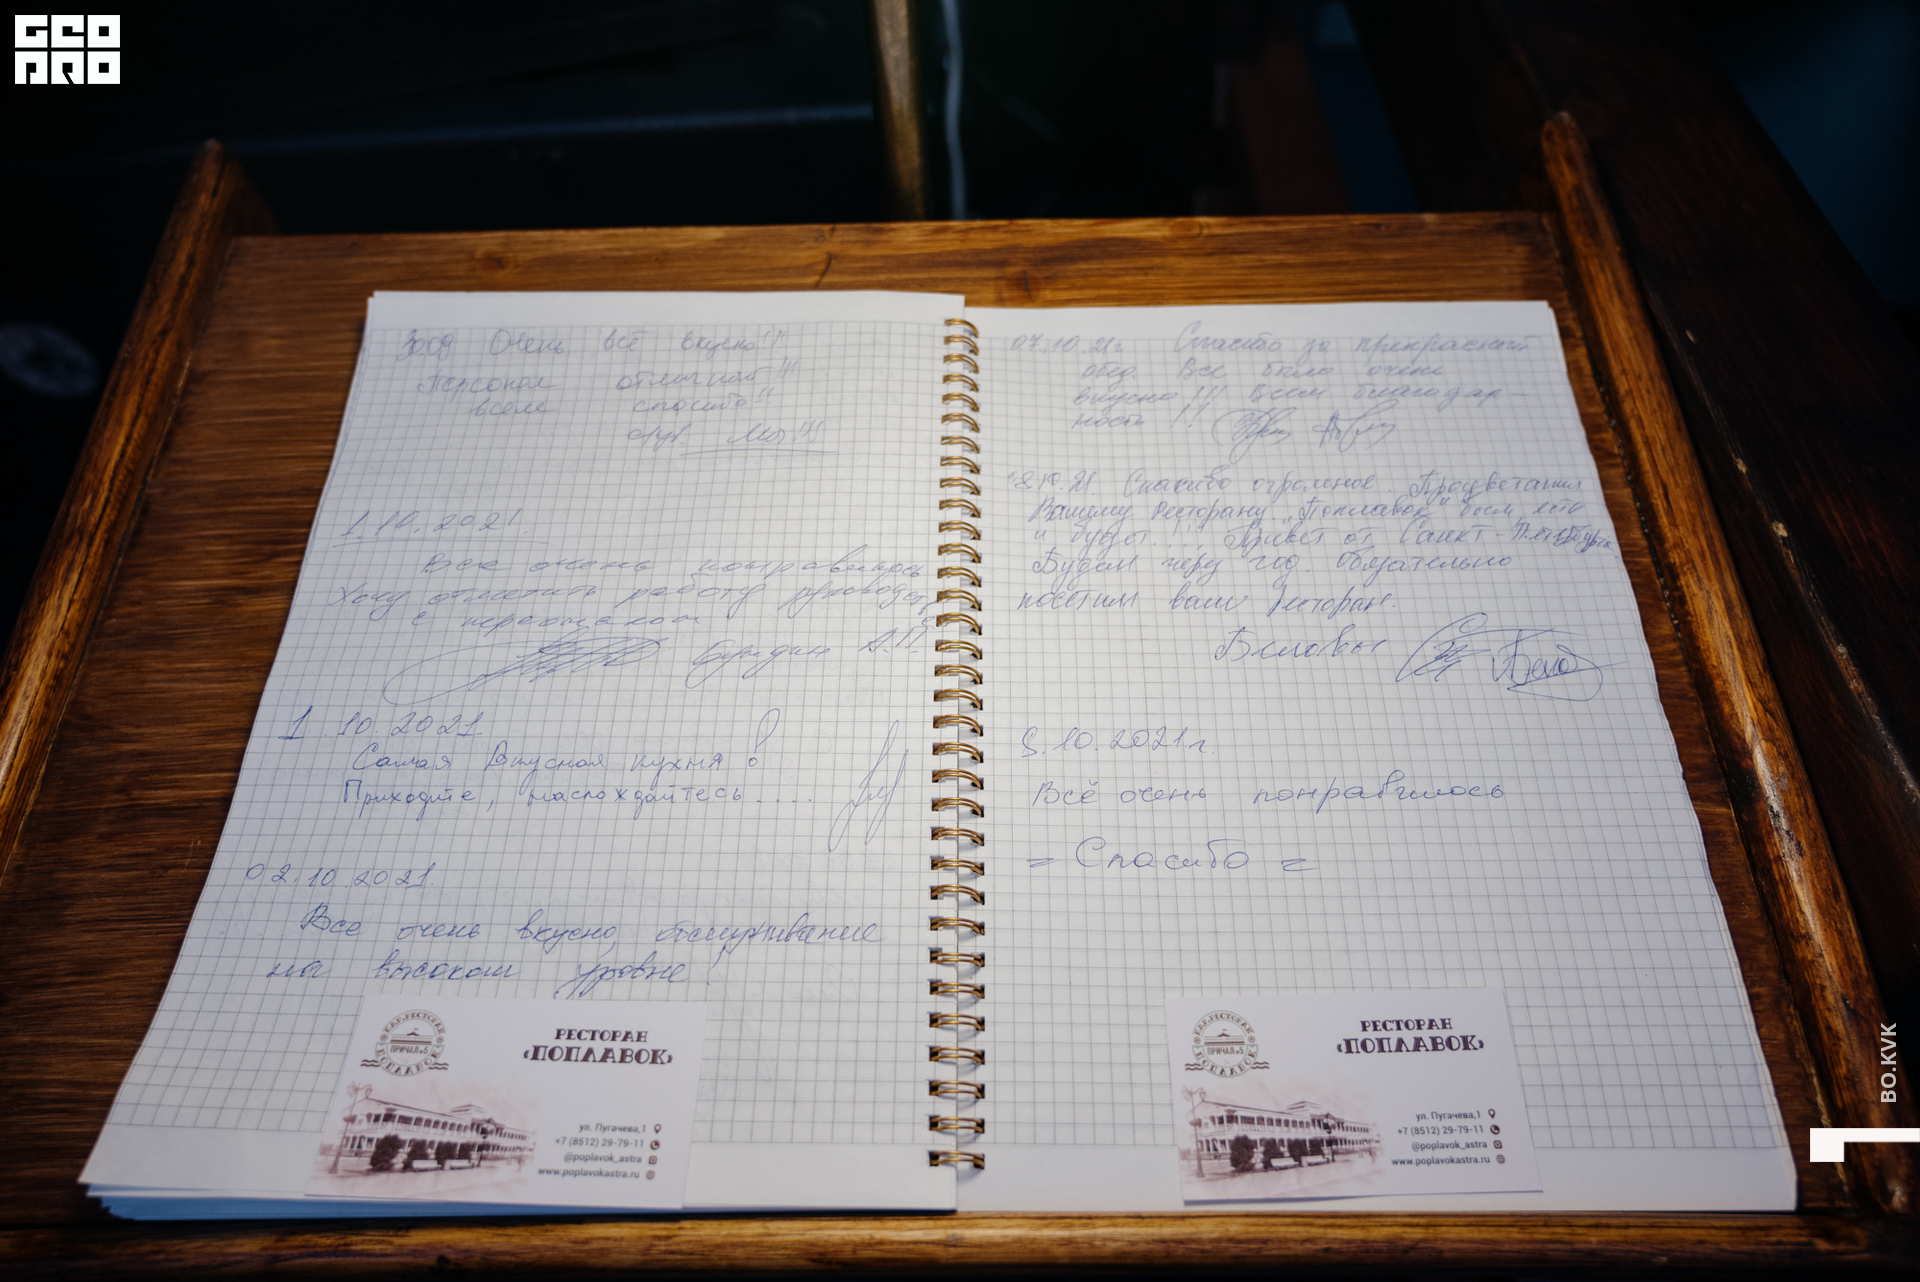 GEO
PRO
30.09 Очень всё вкусно!!!
Персонал отличный!!!
всем спасибо!!
1.10.2021.
Все очень понравилось
Хочу отметить работу
с персоналом
1.10.2021.
Самая Вкусная кухня!
Приходите, наслаждайтесь....
02.10.2021.
Все очень вкусно, обслуживание
на высоком уровне!
КАФЕ-РЕСТОРАН
ПРИЧАЛ №5
ПОПЛАВОК
РЕСТОРАН
«ПОПЛАВОК»
ул. Пугачева,1
+7 (8512) 29-79-11
@poplavok_astra
www.poplavokastra.ru
07.10.21г Спасибо за прекрасный
обед. Все было очень
вкусно!!! Всем благодар-
ность!!
8.10.21 Спасибо огромное. Процветания
Вашему Ресторану „Поплавок" был, есть
и будет!!! Привет от Санкт-Петербурга.
Будем через год. Обязательно
посетим ваш ресторан.
Беловы
.10.2021г.
Всё очень понравилось
= Спасибо =
КАФЕ-РЕСТОРАН
ПРИЧАЛ №5
ПОПЛАВОК
РЕСТОРАН
«ПОПЛАВОК»
ул. Пугачева,1
+7 (8512) 29-79-11
@poplavok_astra
www.poplavokastra.ru
BO.KVK